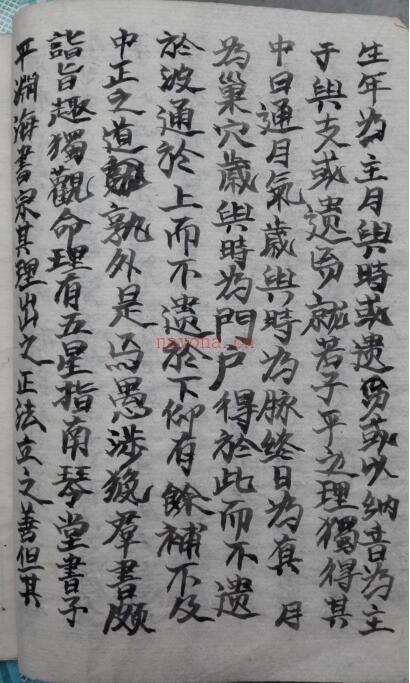 生年為主月與時或遺焉或以納音為主
于與支或遺焉就若子平之理獨得其
中日通月氣歲與時為脉終日為真月
為巢穴歲與時為門户得於此而不遺
於彼通於上而不遺於下仰有餘補不及
中正之道孰外是焉愚涉猟羣書頗
詣旨趣獨觀命理有五星指南琴堂書子
平淵海書泉其理出之正法立之善但其
nayona.cn